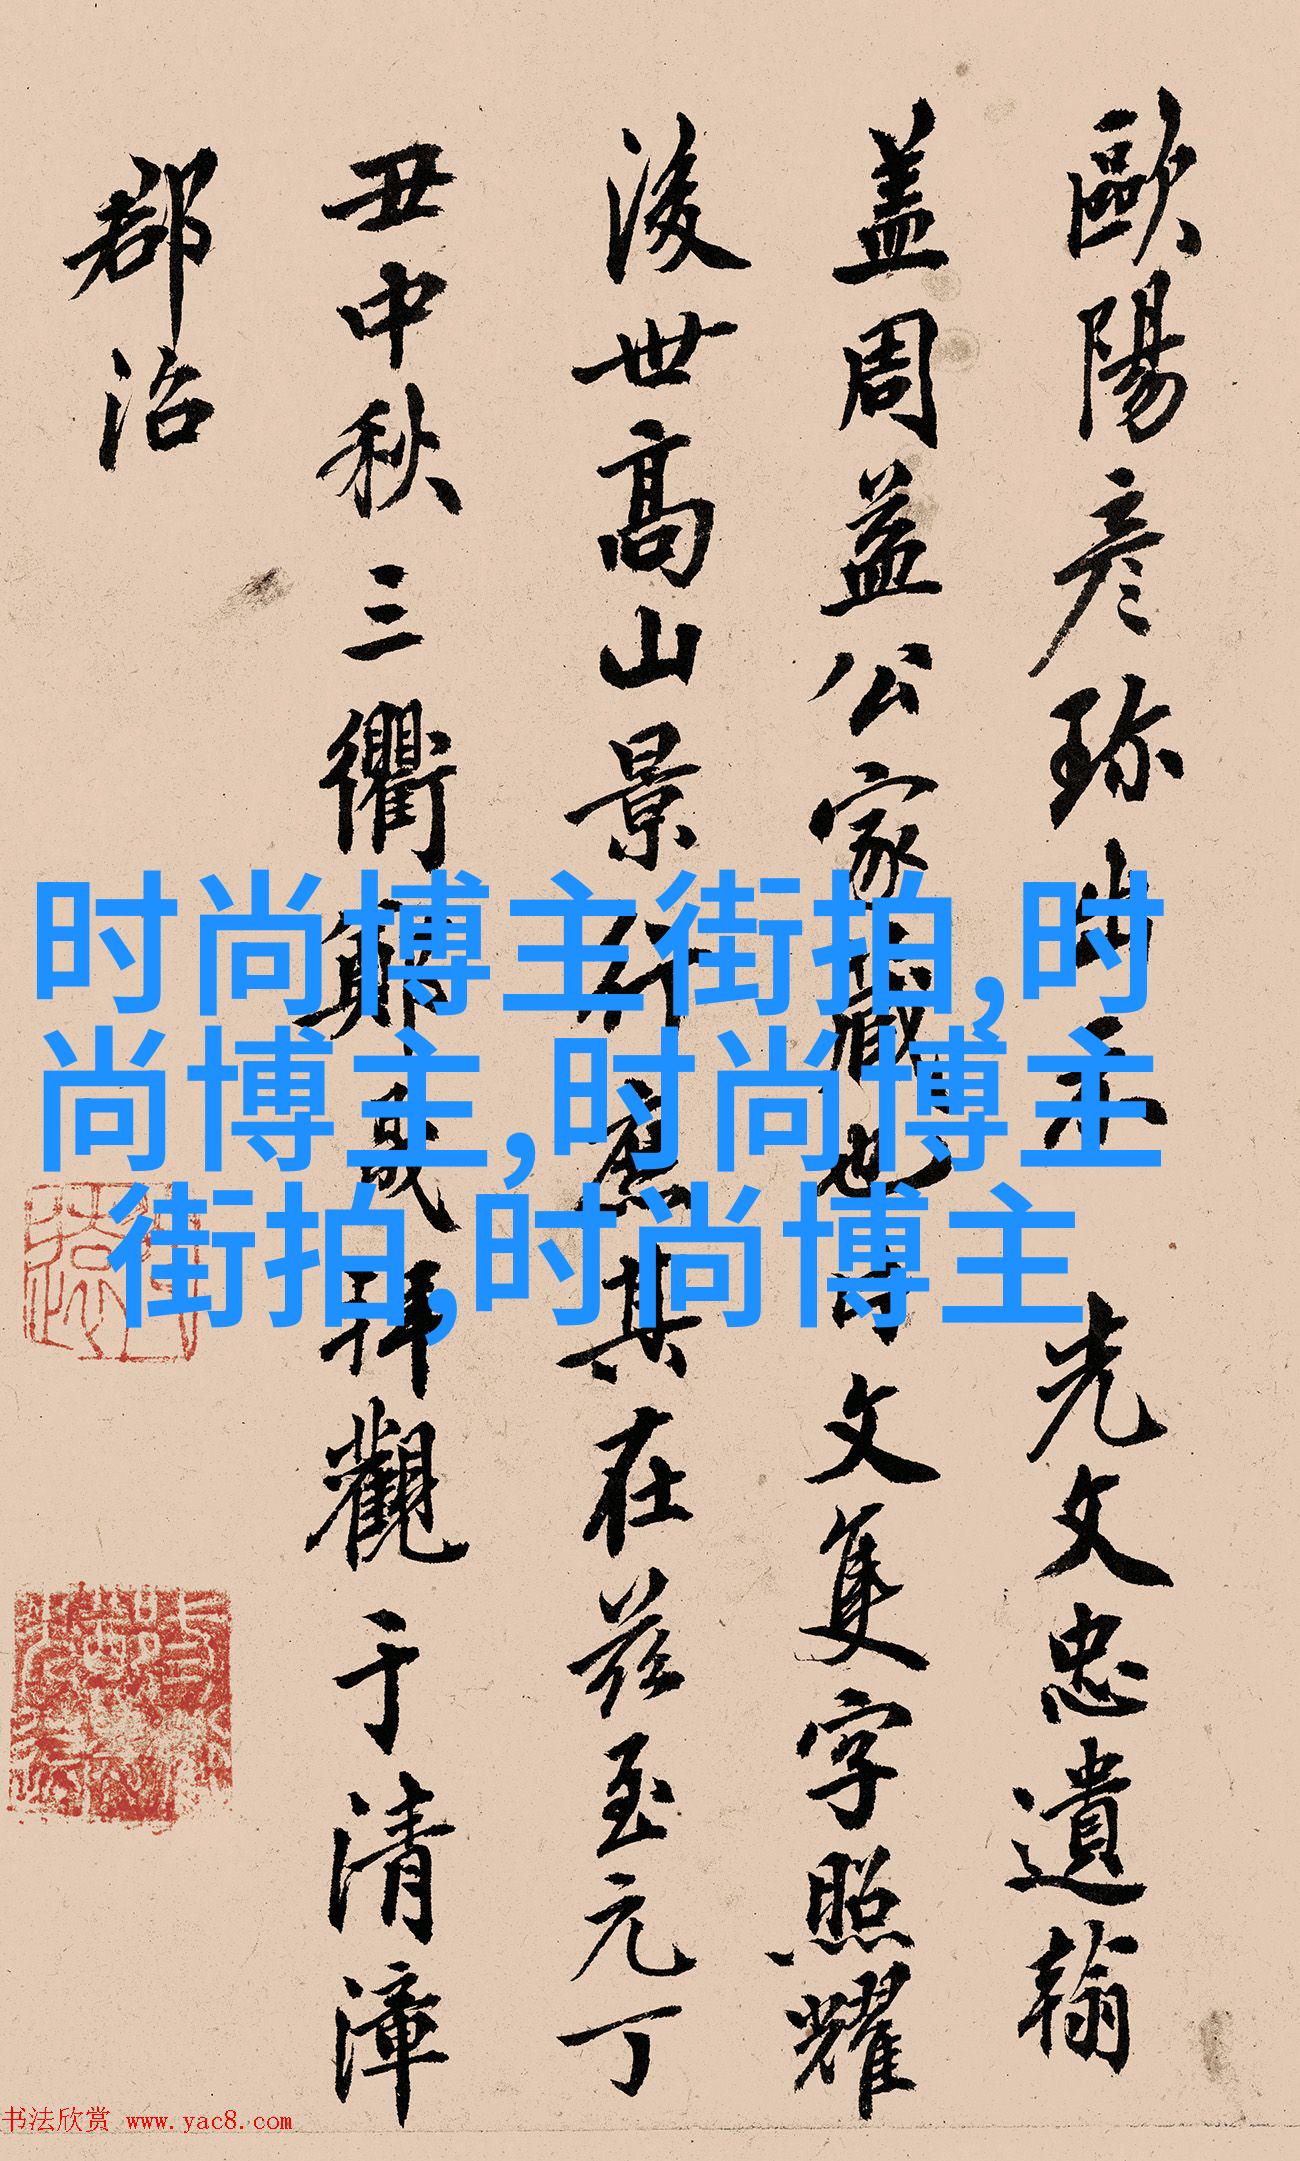 歐陽彥珎出示 先文忠遺翰
盖周益公家藏也片文隻字照耀
後世高山景行應其在兹至元丁
丑中秋三衢鄭
拜觀于清漳
郡治
时尚博主街拍,时
尚博主,时尚博主
街拍,时尚博主
书法欣赏 www.yac8.com